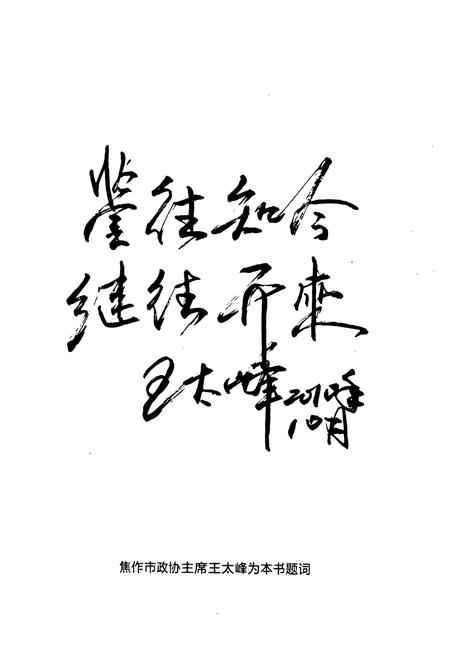 鉴往知今
继往开来
王太峰 2010年
10月
焦作市政协主席王太峰为本书题词